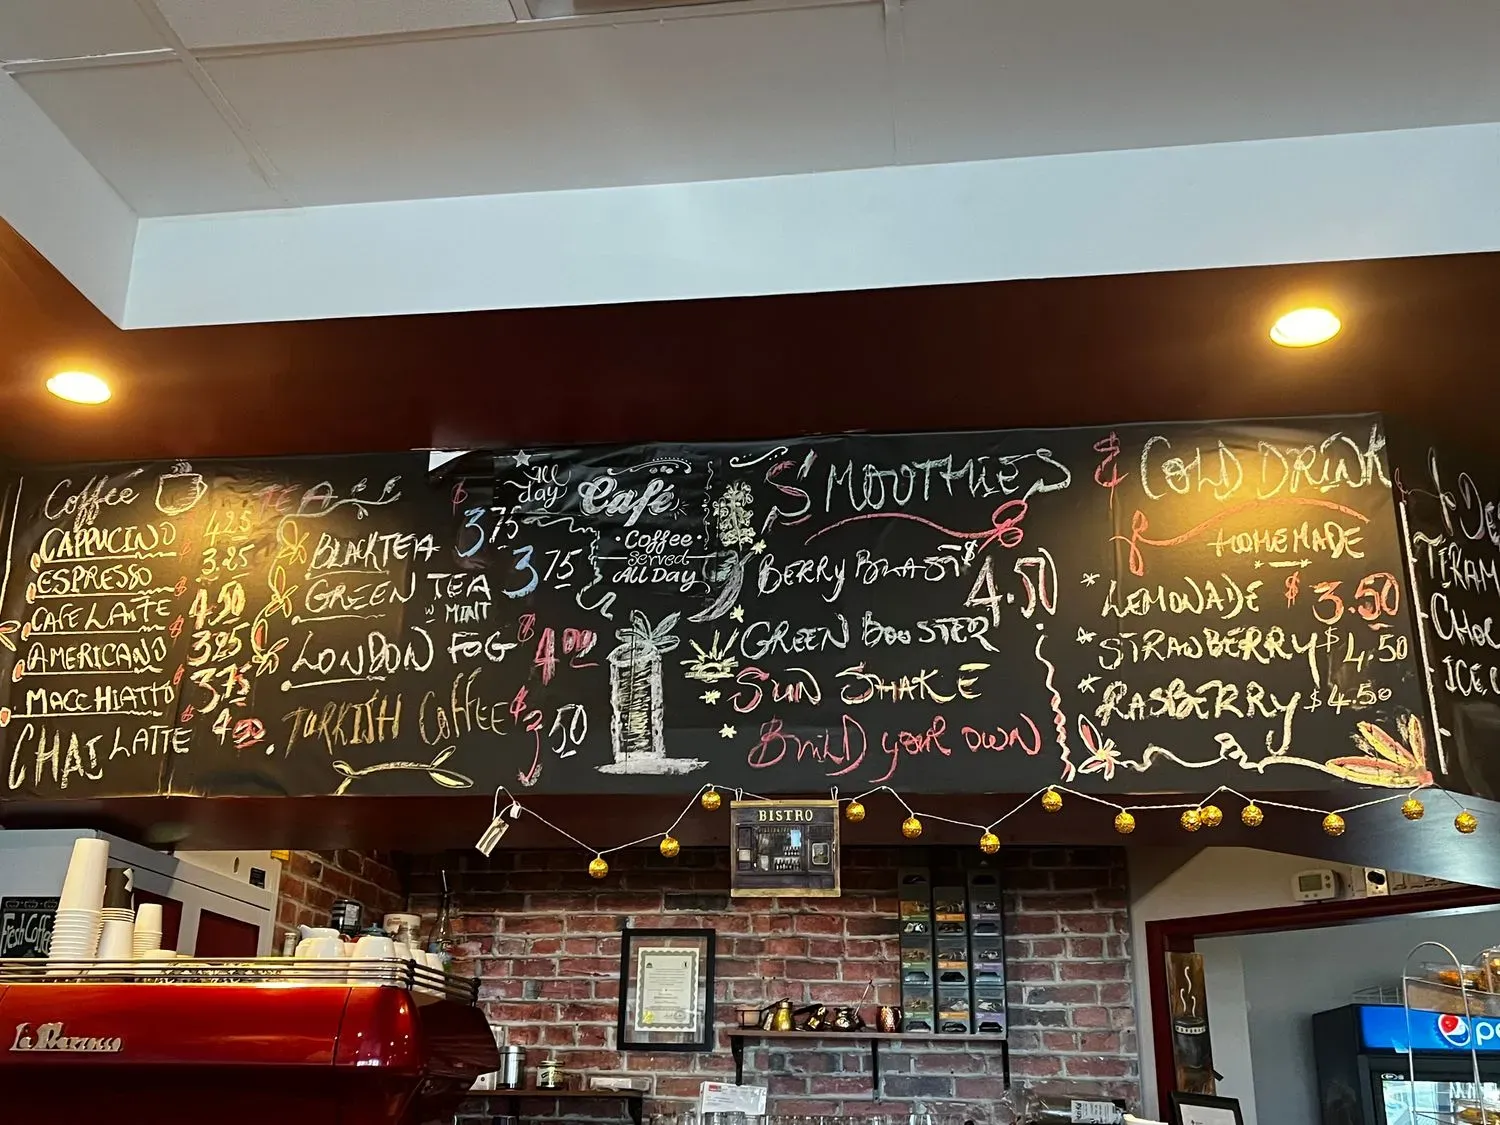 Coffee
CAPPUCINO 4.25
ESPRESSO 3.25
CAFE LATTE $ 4.50
AMERICANO $ 3.25
MACCHIATTO $ 3.75
CHAI LATTE 4.50
TEA $
BLACK TEA 3.75
GREEN TEA 3.75
W MINT
LONDON FOG $ 4.00
TURKISH COFFEE $ 3.50
All day
Café
Coffee
served
All Day
SMOOTHIES
BERRY BLAST $ 4.50
GREEN BOOSTER
SUN SHAKE
BUILD YOUR OWN
& COLD DRINK
HOMEMADE
* LEMONADE $ 3.50
* STRAWBERRY $ 4.50
* RASBERRY $ 4.50
TIRAM
CHOC
ICE C
BISTRO
Fresh Coffe
La Marzocco
pe